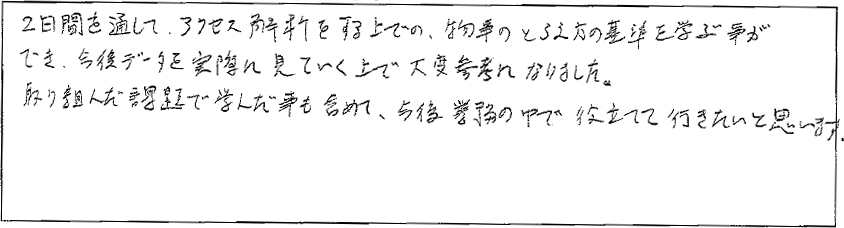 2日間を通して、アクセス解析をする上での、物事のとらえ方の基準を学ぶ事が
でき、今後データを実際に見ていく上で大変参考になりました。
取り組んだ課題で学んだ事も含めて、今後業務の中で役立てて行きたいと思います。